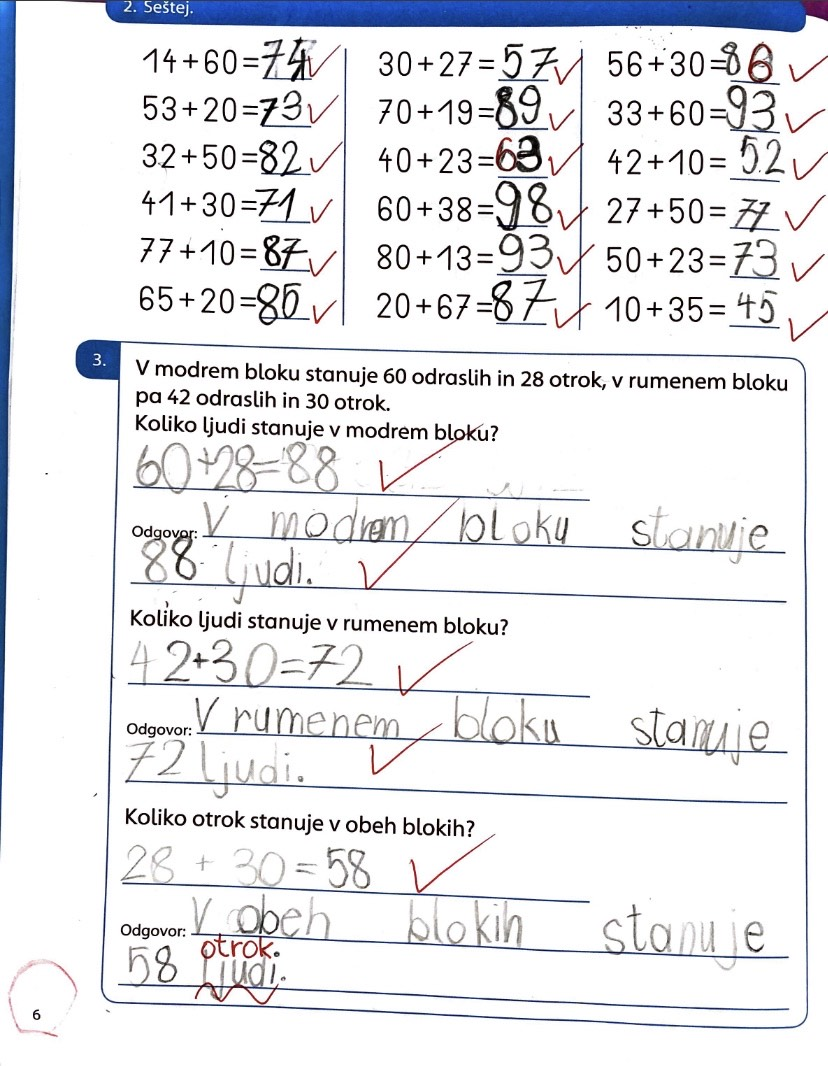 2. Seštej.
14+60=74 30+27=57 56+30=86
53+20=73 70+19=89 33+60=93
32+50=82 40+23=63 42+10=52
41+30=71 60+38=98 27+50=77
77+10=87 80+13=93 50+23=73
65+20=85 20+67=87 10+35=45
3. V modrem bloku stanuje 60 odraslih in 28 otrok, v rumenem bloku
pa 42 odraslih in 30 otrok.
Koliko ljudi stanuje v modrem bloku?
60+28=88
Odgovor: V modrem bloku stanuje
88 ljudi.
Koliko ljudi stanuje v rumenem bloku?
42+30=72
Odgovor: V rumenem bloku stanuje
72 ljudi.
Koliko otrok stanuje v obeh blokih?
28 + 30 = 58
Odgovor: V obeh blokih stanuje
otrok.
58 ljudi.
6